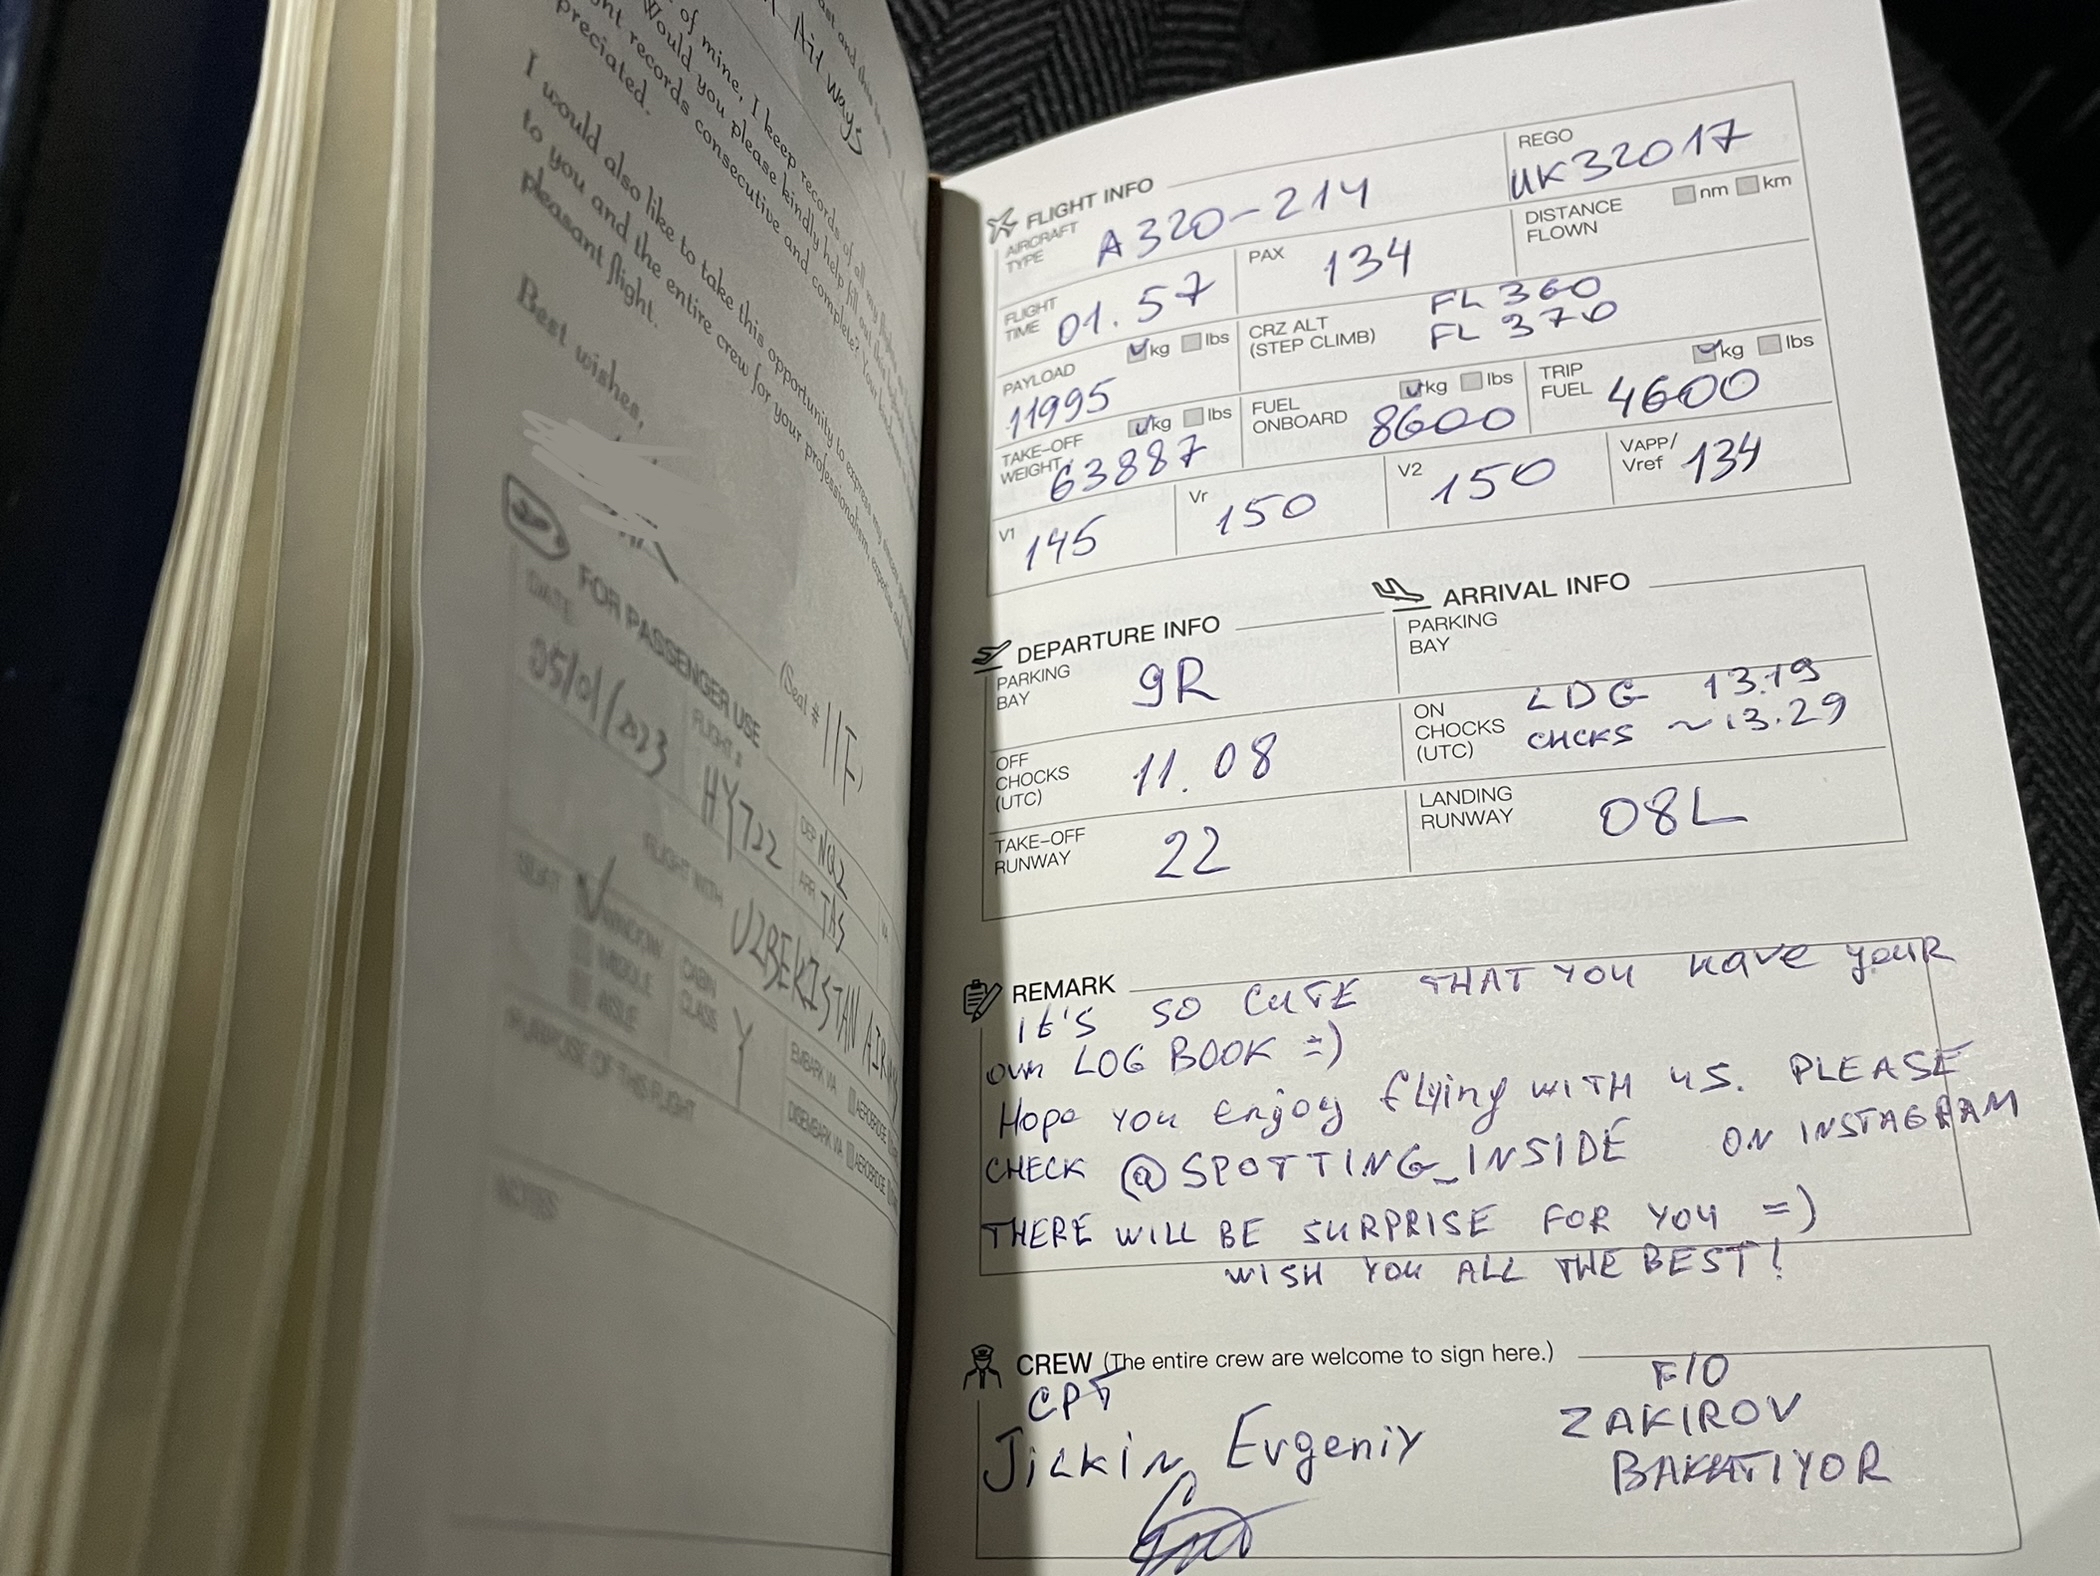 Air Ways
of mine, I keep records of all my flights
Would you please kindly help fill out this
records consecutive and complete? Your
preciated.
I would also like to take this opportunity to express my
to you and the entire crew for your professionalism, expertise and
pleasant flight.
Best wishes,
(Seat # 11F)
FOR PASSENGER USE
DATE
05/01/2023
FLIGHT #
HY722
DEP NQZ
ARR TAS
FLIGHT WITH
UZBEKISTAN
SEAT
WINDOW
MIDDLE
AISLE
CABIN
CLASS
Y
EMBARK VIA
AEROBRIDGE
DISEMBARK VIA
AEROBRIDGE
PURPOSE OF THIS FLIGHT
NOTES
FLIGHT INFO
AIRCRAFT
TYPE
A320-214
REGO
UK32017
FLIGHT
TIME
01.57
PAX
134
DISTANCE
FLOWN
nm km
PAYLOAD
kg lbs
11995
CRZ ALT
(STEP CLIMB)
FL 360
FL 370
TAKE-OFF
WEIGHT
kg lbs
63887
FUEL
ONBOARD
kg lbs
8600
TRIP
FUEL
kg lbs
4600
V1
145
Vr
150
V2
150
VAPP/
Vref
134
DEPARTURE INFO
PARKING
BAY
9R
OFF
CHOCKS
(UTC)
11.08
TAKE-OFF
RUNWAY
22
ARRIVAL INFO
PARKING
BAY
ON
CHOCKS
(UTC)
LDG 13.19
CHCKS ~13.29
LANDING
RUNWAY
08L
REMARK
It'S SO CUTE THAT YOU HAVE YOUR
own LOG BOOK =)
Hope YOU enjoy flying WITH US. PLEASE
CHECK @SPOTTING_INSIDE ON INSTAGRAM
THERE WILL BE SURPRISE FOR YOU =)
WISH YOU ALL THE BEST!
CREW (The entire crew are welcome to sign here.)
CPT
Jilkin Evgeniy
F/O
ZAKIROV
BAKHTIYOR